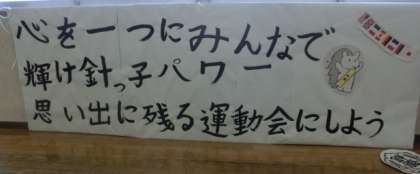 心を一つにみんなで
輝け針っ子パワー
思い出に残る運動会にしよう